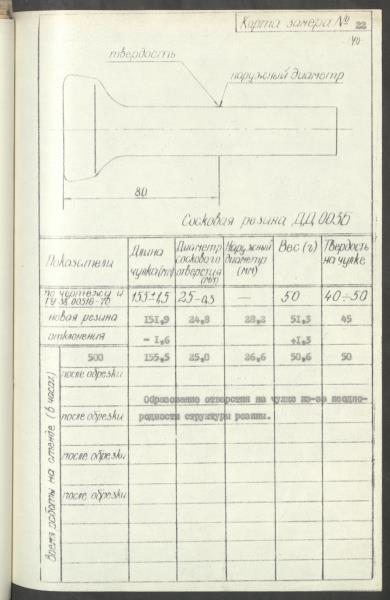 Карта замера № 22
40
твердость
наружный диаметр
80
Сосковая резина ДД.00.3Б
Показатели | Длина чулка(мм) | Диаметр соскового отверстия (мм) | Наружный диаметр (мм) | Вес (г) | Твердость на чулке
по чертежу и ТУ 38.00516-70 | 155±1,5 | 25-0,5 | — | 50 | 40÷50
новая резина | 151,9 | 24,8 | 28,2 | 51,3 | 45
отклонения | - 1,6 | +1,3
500 | 155,5 | 25,0 | 26,6 | 50,6 | 50
Время работы на стенде (в часах)
после обрезки
Образование отверстия на чулке из-за неодно-
после обрезки
родности структуры резины.
после обрезки
после обрезки